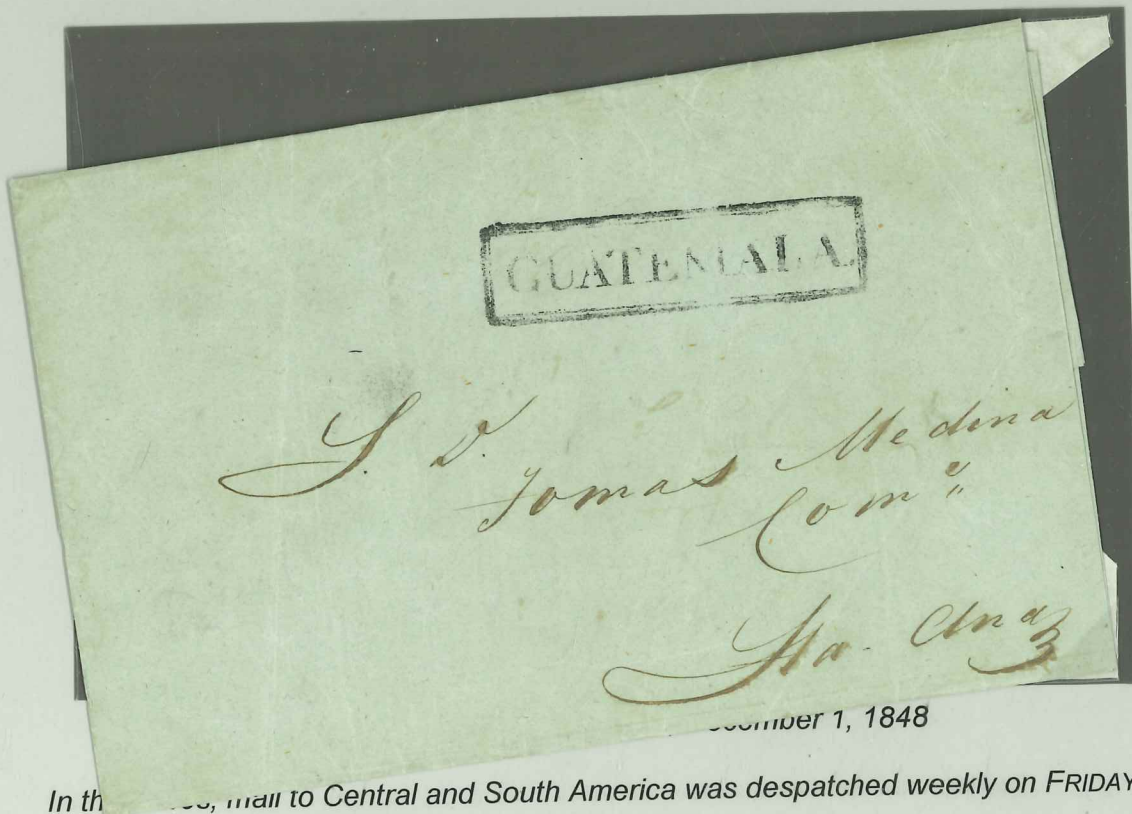 GUATEMALA.
S. D.
Tomas Medina
Com.º
Sta. Ana
1, 1848
In mail to Central and South America was despatched weekly on FRIDAY